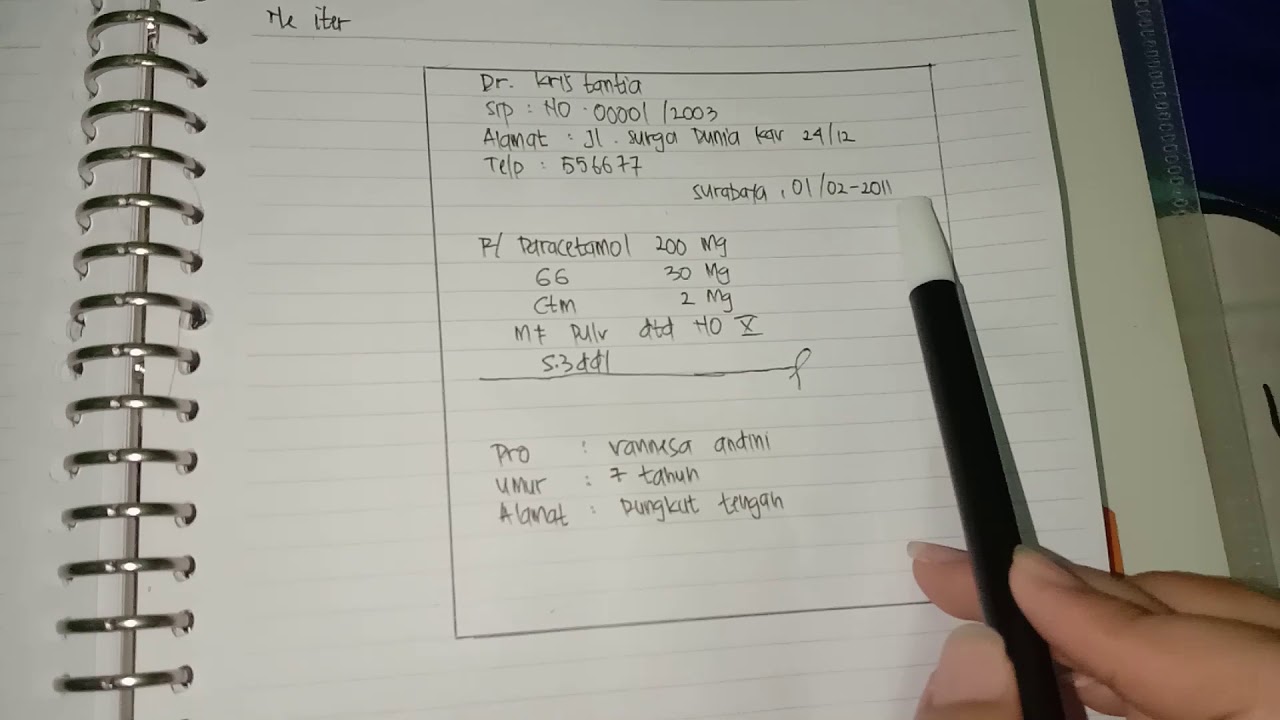 Ne iter
Dr. Kris tantia
SIP : NO . 00001 / 2003
Alamat : Jl. Surga Dunia kav 24/12
Telp : 556677
Surabaya , 01/02-2011
R/ Paracetamol 200 Mg
GG 30 Mg
Ctm 2 Mg
Mf pulv dtd NO X
S.3dd1
Pro : Vannesa andini
Umur : 7 tahun
Alamat : Rungkut tengah